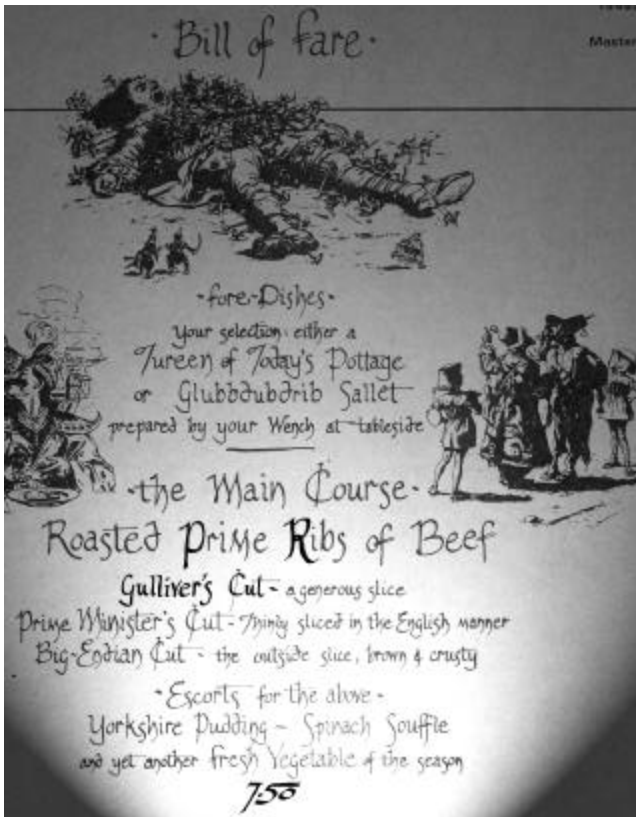 · Bill of Fare ·
Master
- Fore-Dishes -
Your selection: either a
Tureen of Today's Pottage
or Glubbdubdrib Sallet
prepared by your Wench at tableside
- the Main Course -
Roasted Prime Ribs of Beef
Gulliver's Cut - a generous slice
Prime Minister's Cut - Thinly sliced in the English manner
Big-Endian Cut - the outside slice, brown & crusty
- Escorts for the above -
Yorkshire Pudding - Spinach Souffle
and yet another Fresh Vegetable of the season
7.50